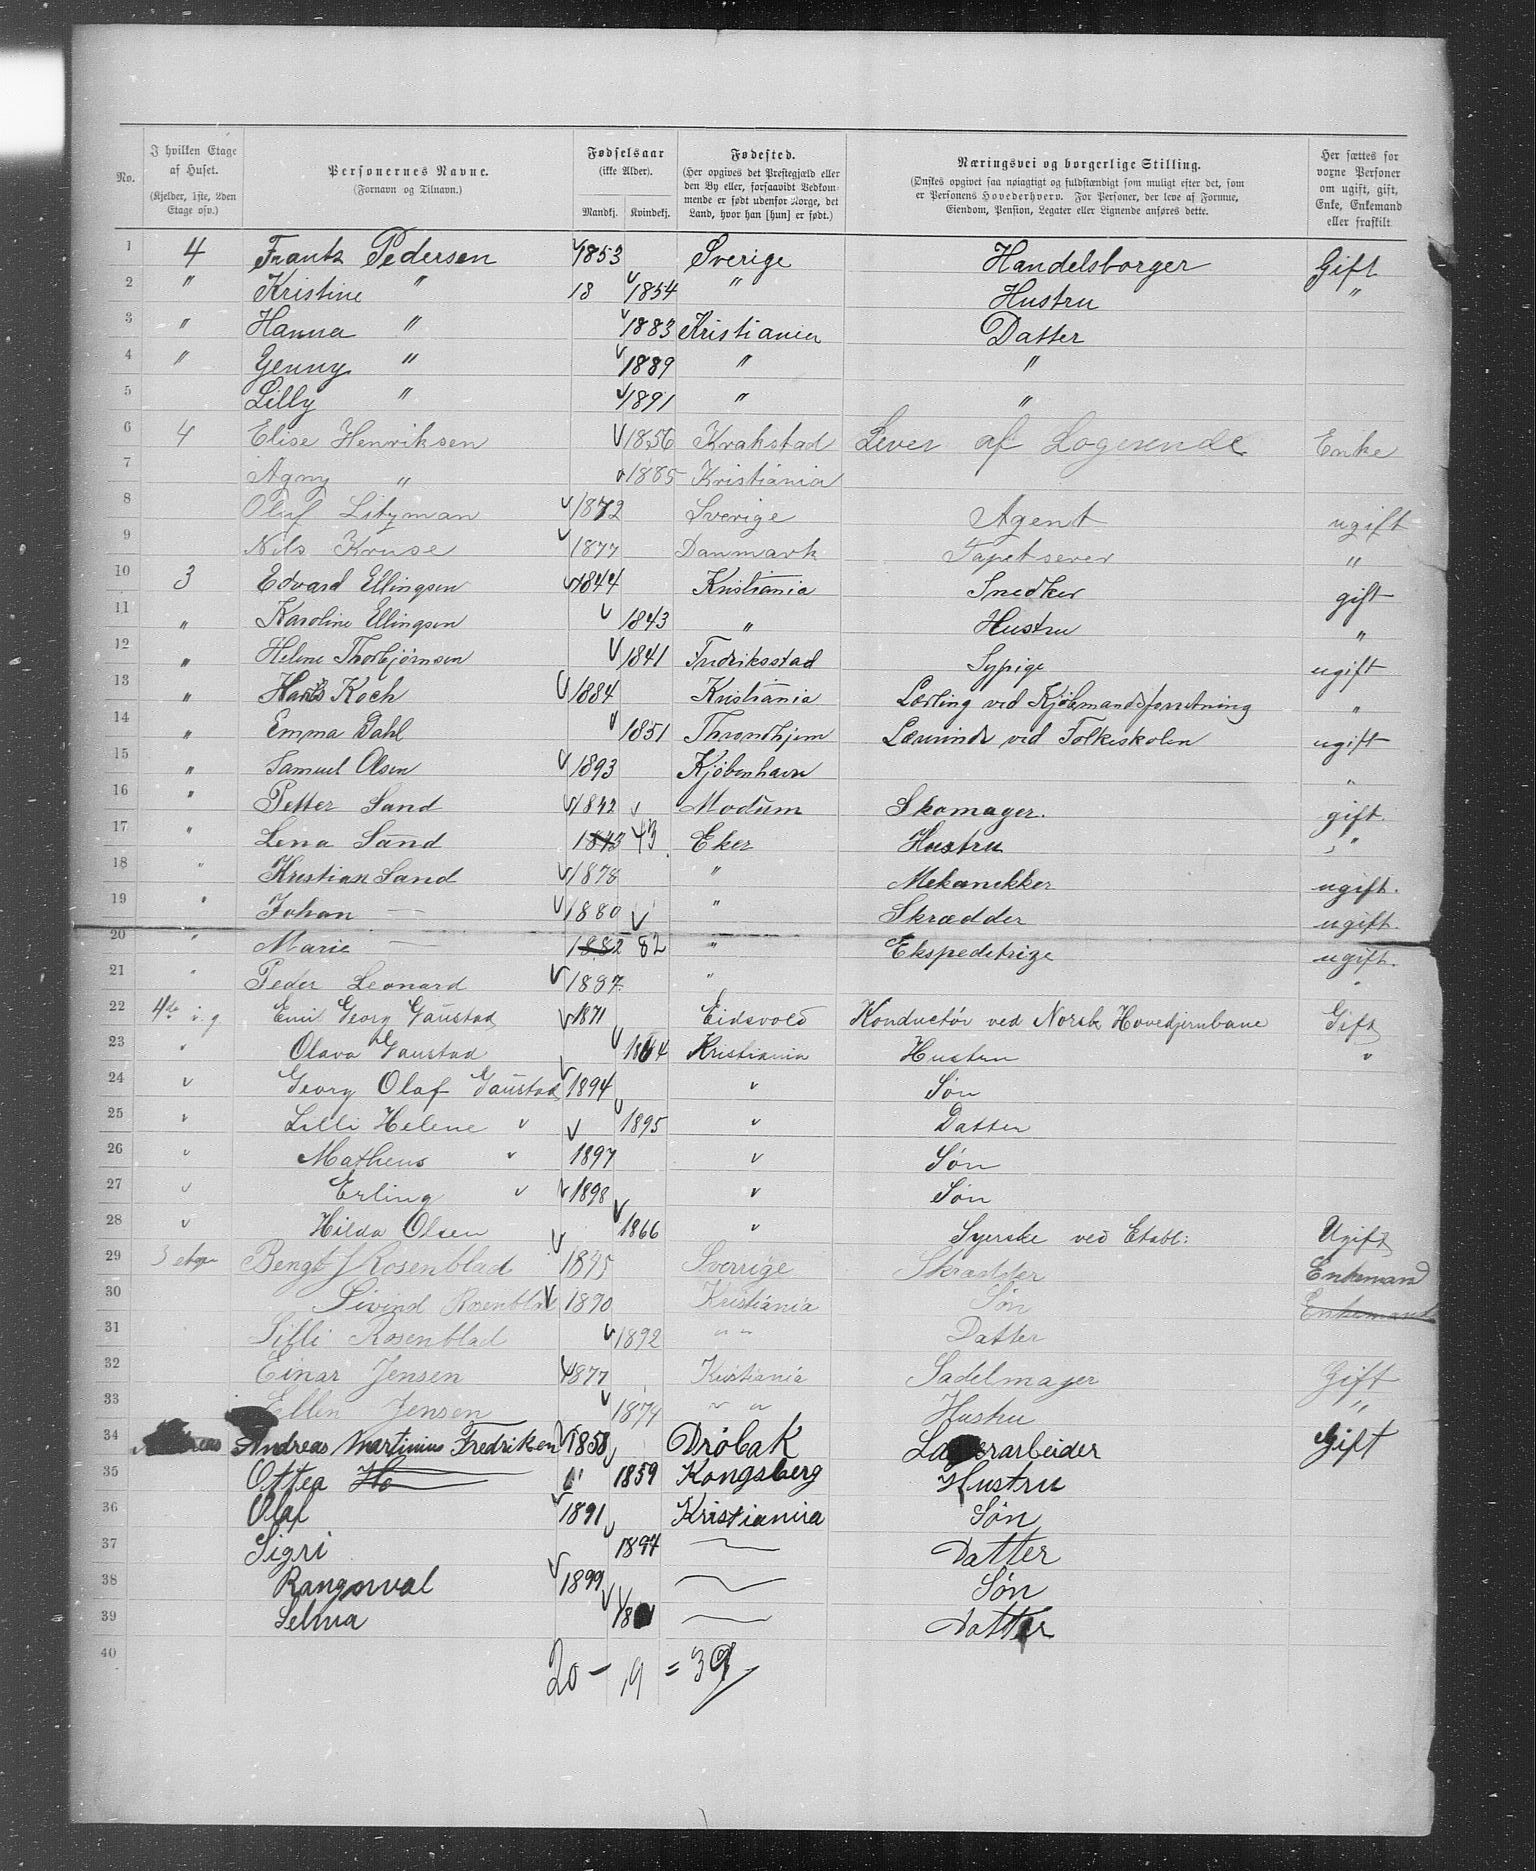 No. I hvilken Etage af Huset. (Kjelder, 1ste, 2den Etage osv.) Personernes Navne. (Fornavn og Tilnavn.) Fødselsaar (ikke Alder). Mandkj. Kvindekj. Fødested. (Her opgives det Prestegjæld eller den By eller, forsaavidt Vedkommende er født udenfor Norge, det Land, hvor han [hun] er født.) Næringsvei og borgerlige Stilling. (Ønskes opgivet saa nøiagtigt og fuldstændigt som muligt efter det, som er Personens Hovederhverv. For Personer, der leve af Formue, Eiendom, Pension, Legater eller Lignende anføres dette. Her sættes for voxne Personer om ugift, gift, Enke, Enkemand eller fraskilt
1 4 Frantz Pedersen 1853 Sverige Handelsborger Gift
2 " Kristine " 18 1854 " Hustru "
3 " Hanna " 1883 Kristiania Datter
4 " Genny " 1889 " "
5 Lilly " 1891 " "
6 4 Elise Henriksen 1856 Krakstad Lever af Logerende Enke
7 Agny " 1885 Kristiania
8 Oluf Litzman 1872 Sverige Agent ugift
9 Nils Kruse 1877 Danmark Tapetserer "
10 3 Edvard Ellingsen 1844 Kristiania Snedker gift
11 " Karoline Ellingsen 1843 " Hustru "
12 " Helene Thorbjørnsen 1841 Fredriksstad Sypige ugift
13 " Hans Koch 1884 Kristiania Lærling ved Kjøbmandsforretning "
14 " Emma Dahl 1851 Throndhjem Lærerinde ved Folkeskolen ugift
15 " Samuel Olsen 1893 Kjøbenhavn "
16 " Petter Sand 1842 Modum Skomager. gift.
17 " Lena Sand 1843 43 Eker Hustru "
18 " Kristian Sand 1878 " Mekanikker ugift.
19 " Johan — 1880 " Skrædder ugift.
20 " Marie — 1882 82 " Ekspeditrize ugift.
21 " Peder Leonard 1897. " "
22 4de i. g Emil Georg Gaustad 1871 Eidsvold Konductør ved Norsk Hovedjernbane Gift
23 " Olava Gaustad 1864 Kristiania Hustru "
24 " Georg Olaf Gaustad 1894 " Søn
25 " Lilli Helene " 1895 " Datter
26 " Matheus " 1897 " Søn
27 " Erling " 1898 " Søn
28 " Hilda Olsen 1866 " Syerske ved Etabl: Ugift
29 3 etage Bengt J Rosenblad 1845 Sverrige Skrædder Enkemand
30 Sivind Rosenblad 1890 Kristiania Søn Enkemand
31 Lilli Rosenblad 1892 " " Datter
32 Einar Jensen 1877 Kristiania Sadelmager Gift
33 Ellen Jensen 1874 " " Hustru "
34 Andreas Martinius Fredriksen 1858 Drøbak Lagerarbeider Gift
35 Ottea Ho 1859 Kongsberg Hustru
36 Olaf 1891 Kristiania Søn
37 Sigri 1897 — Datter
38 Rangnval 1899 — Søn
39 Selma — Datter
40
20 – 19 = 39